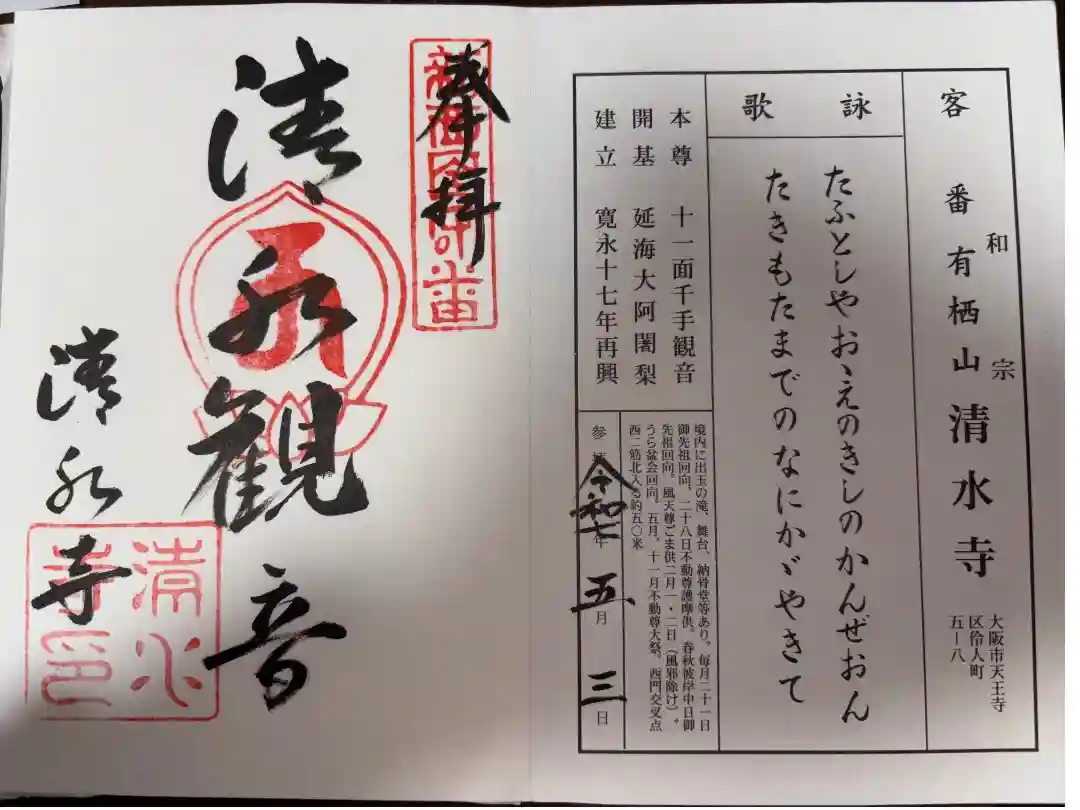 客番 有栖山 清水寺
和宗
大阪市天王寺
区伶人町
五ー八
詠歌
たふとしやおゝえのきしのかんぜおん
たきもたまでのなにかゞやきて
本尊 十一面千手観音
開基 延海大阿闍梨
建立 寛永十七年再興
境内に出玉の滝、舞台、納骨堂等あり。毎月二十一日
御先祖回向、二十八日不動尊護摩供。春秋彼岸中日御
先祖回向。風天尊ごま供二月一・二日（風邪除け）。
うら盆会回向。五月、十一月不動尊大祭。西門交叉点
西二筋北入る約五〇米
令和七年五月三日
奉拝
清水観音
清水寺
清水
寺印